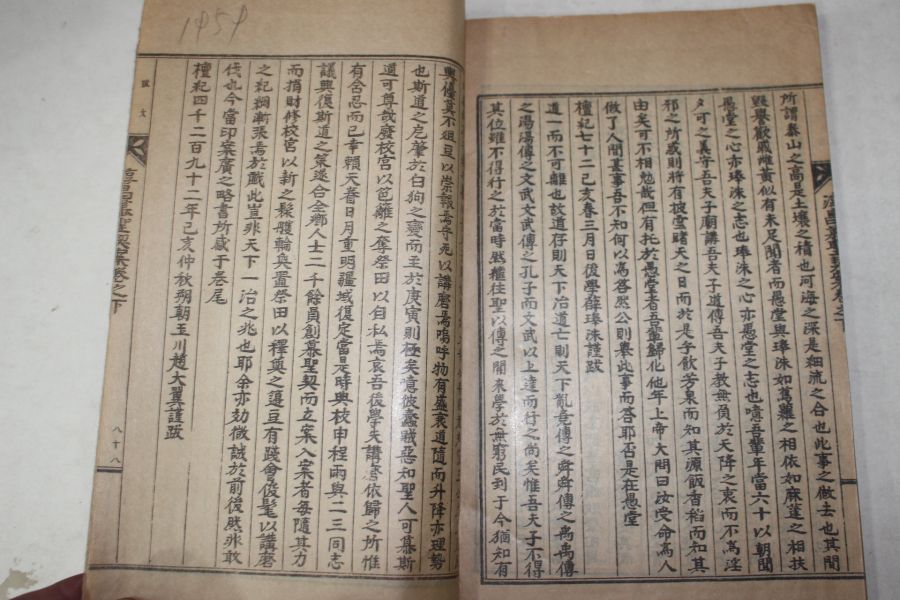 所謂泰山之高是土壤之積也河海之深是細流之合也此事之做去也其間
毁舉歡戚雌黃似有未足聞者而愚堂與琫洙如蔦蘿之相依如麻蓬之相扶
愚堂之心亦琫洙之志也琫洙之心亦愚堂之志也噫吾輩年當六十以朝聞
夕可之義守吾夫子廟講吾夫子道傳吾夫子教無負於天降之衷而不為淫
邪之所惑則將有披雲睹天之日而於是乎飲芳泉而知其源飯香稻而知其
由矣可不相勉哉但有托於愚堂者吾輩歸化他年上帝大問曰汝受命為人
做了人間甚事吾不知何以為答然公則舉此事而答耶否是在愚堂
檀紀七十二己亥春三月日後學薛琫洙謹跋
道一而不可離也故道存則天下治道亡則天下亂堯傳之舜舜傳之禹禹傳
之湯湯傳之文武文武傳之孔子而文武以上達而行之尚矣惟吾夫子不得
其位雖不得行之於當時繼往聖以傳之開來學於無窮民到于今猶知有
與優莫不俎豆以崇報焉守死以講磨焉嗚呼物有盛衰道隨而升降亦理勢
也斯道之厄肇於白狗之變而至於庚寅則極矣噫彼蠡賊惡知聖人可慕斯
道可尊哉廢校宮以笆籬之奪祭田以自私焉哀吾後學失講養依歸之所惟
有含忍而已幸賴天眷日月重明疆域復定當是時與校申程兩與二三同志
議興復斯道之策遂合全鄉人士二千餘員創慕聖契而立案入案者每隨其力
而捐財修校宮以新之髹雘輪奐置祭田以釋奠之籩豆有踐會俊髦以講磨
之紀綱漸張焉於戲此豈非天下一治之兆也耶余亦効微誠於前後然非敢
伐也今當印案廣之略書所感于卷尾
檀紀四千二百九十二年己亥仲秋朔朝玉川趙大翼謹跋
跋文
慕聖契案卷之下
八十八
1959